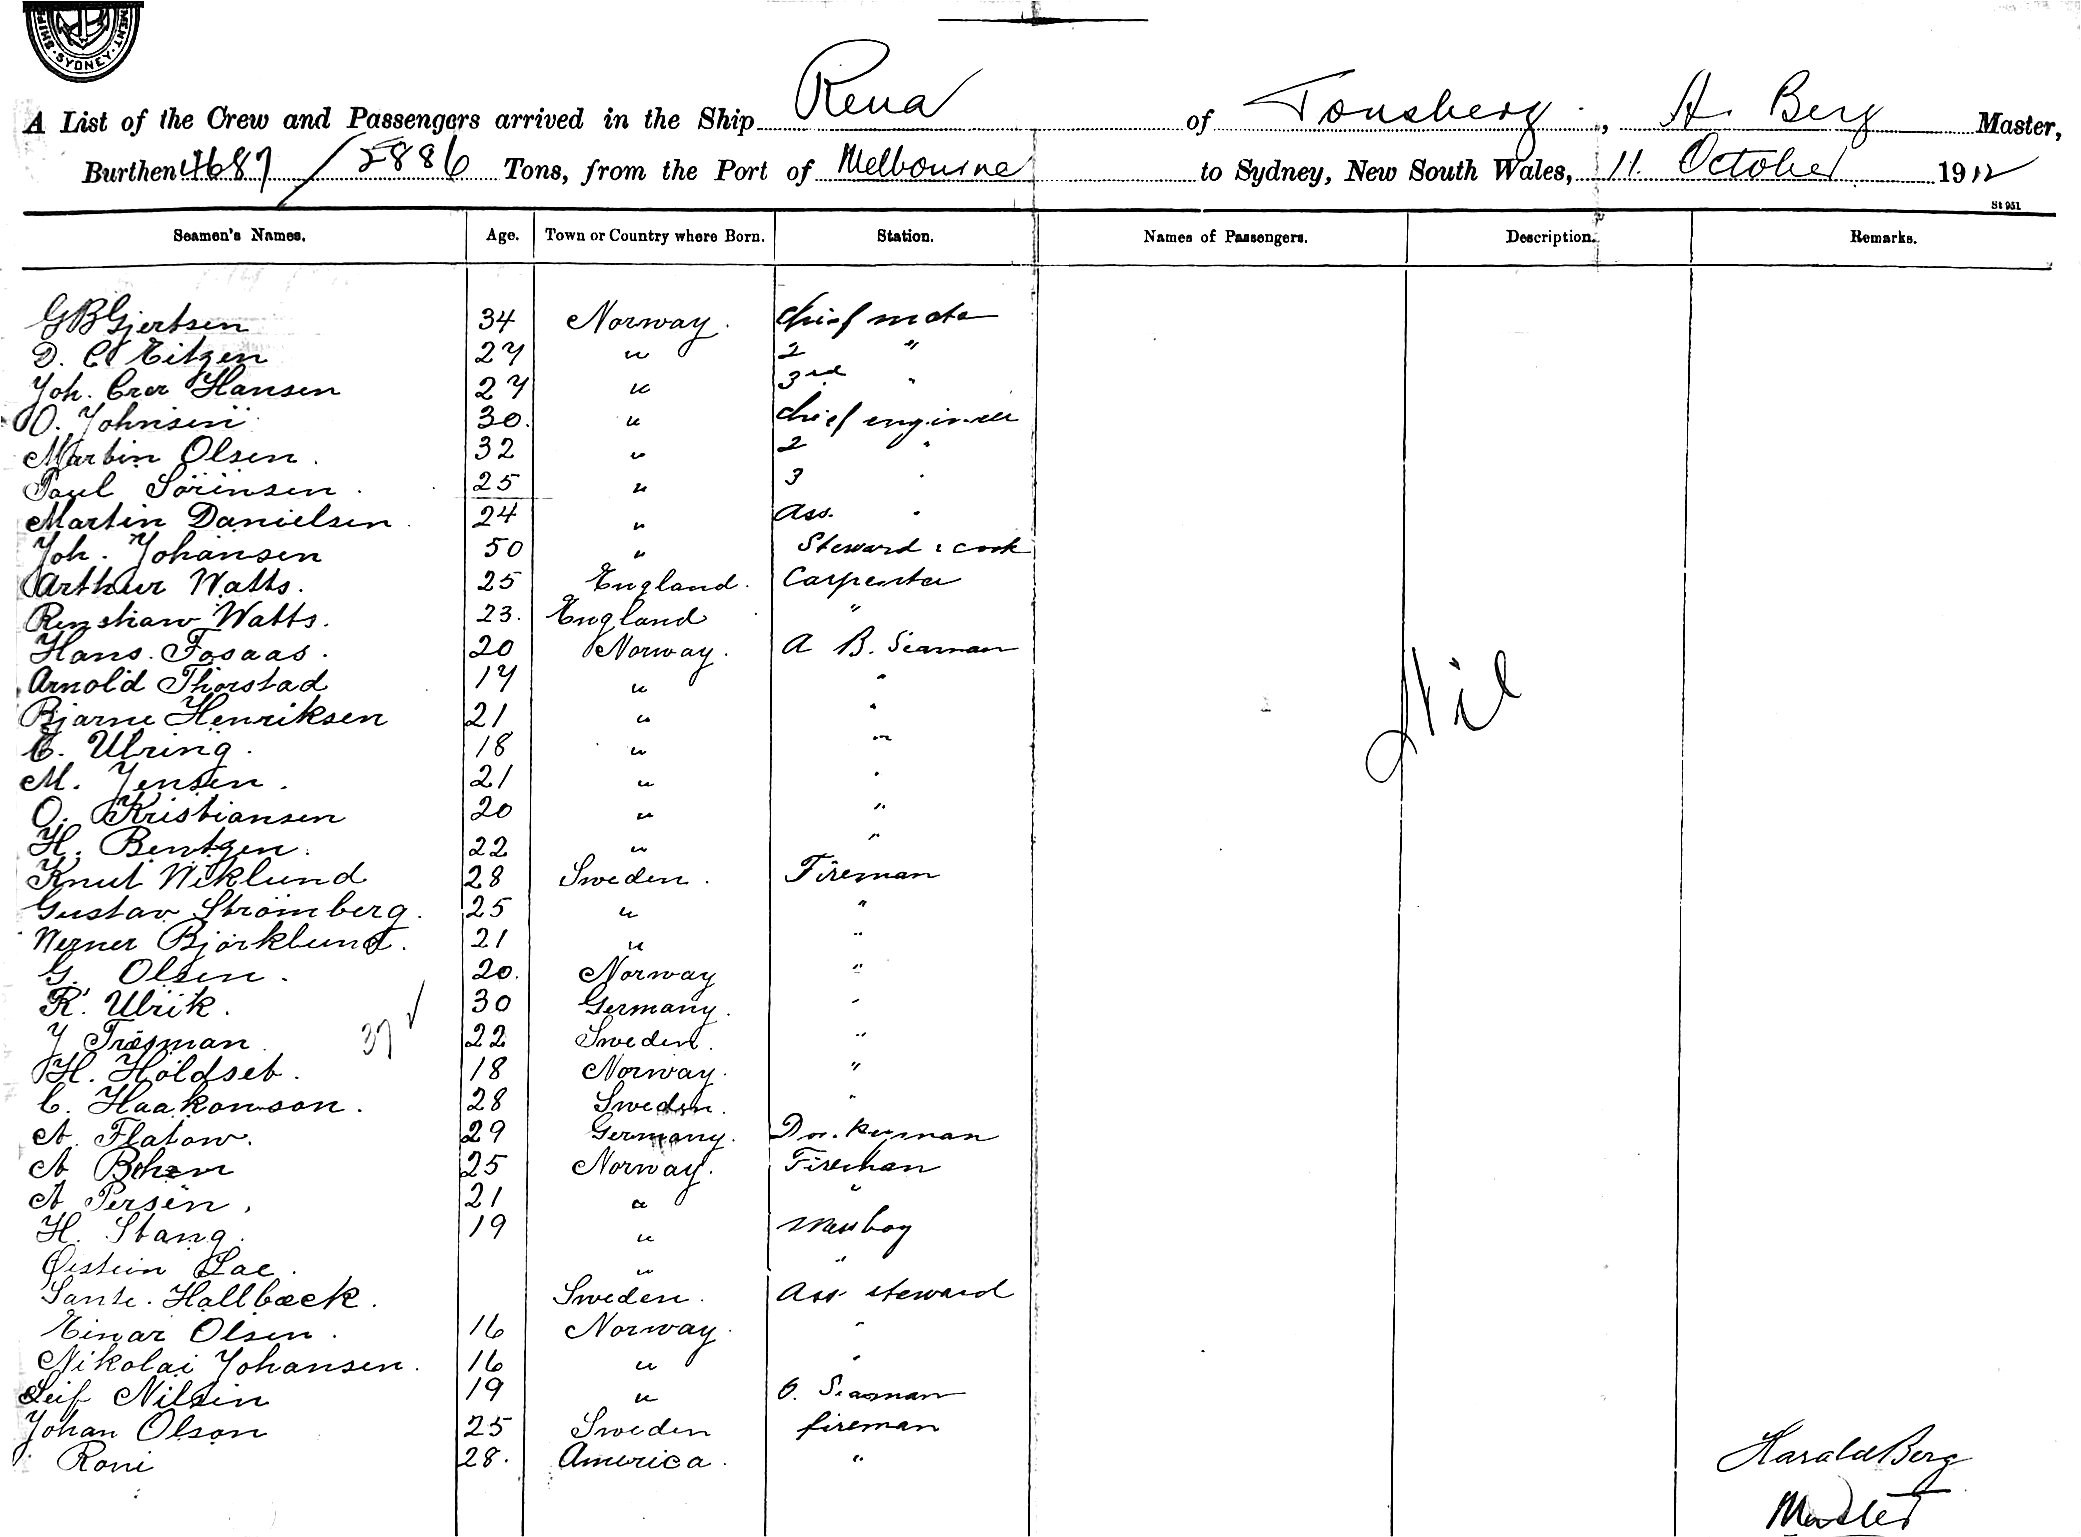 SHIP MENT. SYDNEY
A List of the Crew and Passengers arrived in the Ship Rena of Tonsberg, A. Berg Master,
Burthen 4687/2886 Tons, from the Port of Melbourne to Sydney, New South Wales, 11. October 1912
St 951
Seamen's Names. Age. Town or Country where Born. Station. Names of Passengers. Description. Remarks.
G B Gjertsen 34 Norway. Chief mate
D. C Eitzen 27 " 2 "
Joh. Hansen 27 " 3rd "
O. Johnsen 30. " Chief engineer
Martin Olsen. 32 " 2 "
Paul Sörensen. 25 " 3 "
Martin Danielsen. 24 " Ass. "
Joh. Johansen 50 " Steward & cook
Arthur Watts. 25 England. Carpenter
Renshaw Watts. 23. England "
Hans. Fosaas. 20 Norway. A B. Seaman
Arnold Thorstad 17 " "
Bjarne Henriksen 21 " "
C. Ulring. 18 " "
M. Jensen. 21 " "
O. Kristiansen 20 " "
H. Bentzen. 22 " "
Knut Wiklund 28 Sweden. Fireman
Gustav Strömberg. 25 " "
Werner Björklund. 21 " "
G. Olsen. 20. Norway "
R. Ulrik. 30 Germany. "
J 22 Sweden. "
37 ✓
H. Holdset. 18 Norway. "
C. Haakonson. 28 Sweden. "
A. Flatow. 29 Germany. Don. keyman
A 25 Norway. Fireman
A Persen. 21 " "
H. Stang. 19 " Messboy
Öistein " "
Hallbæck. Sweden. Ass steward
Einar Olsen. 16 Norway. "
Nikolai Johansen. 16 " "
Leif Nilsen 19 " O. Seaman
Johan Olson 25 Sweden fireman
Roni 28. America. "
Nil
Harald Berg
Master